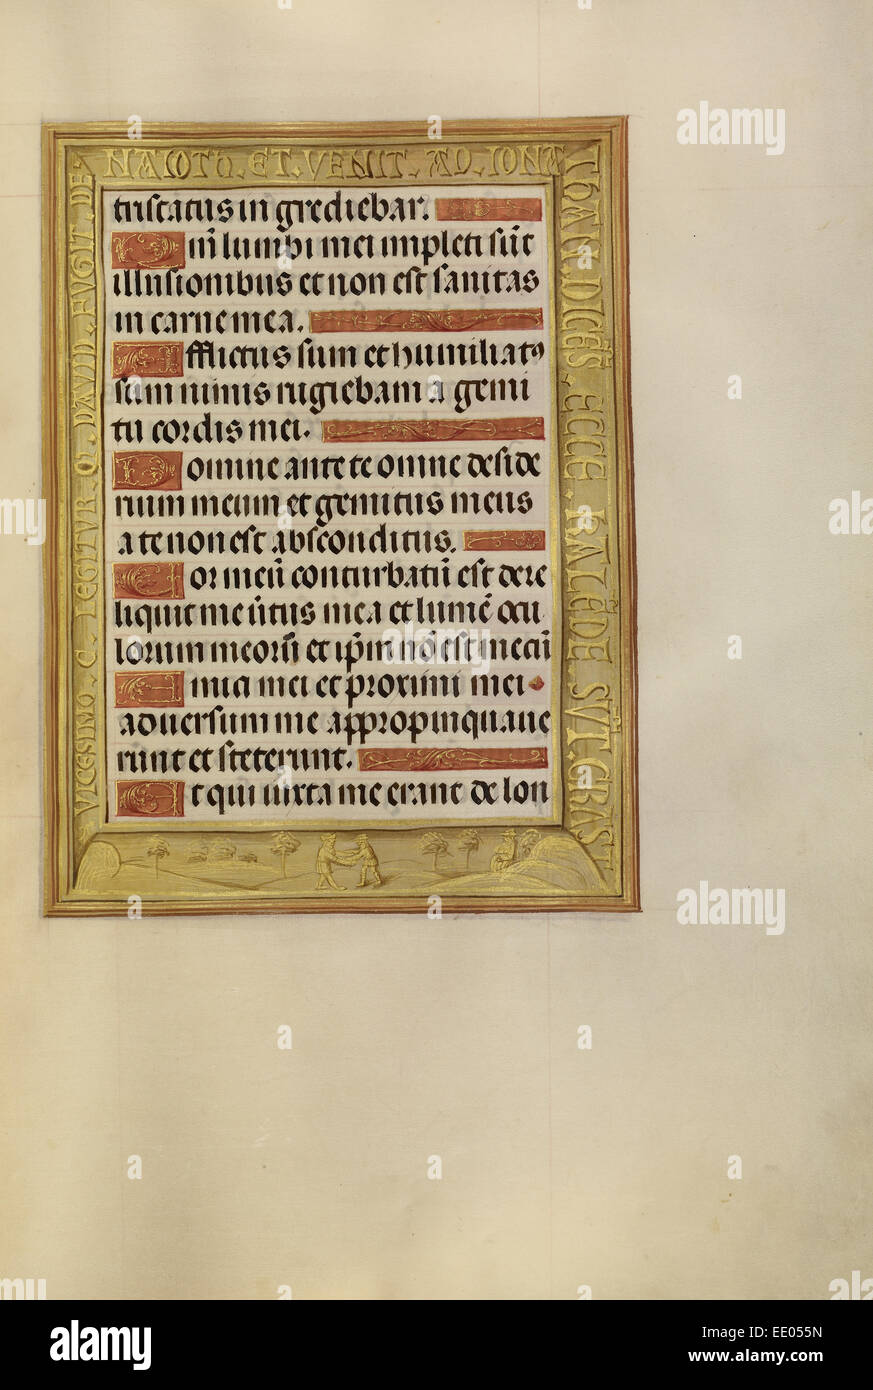 VICESIMO . C . LEGITVR . Q . DAVID . FVGIT . DE .
NAIOTH . ET . VENIT . AD . IONA
THAN . DICES . ECCE . KALEDE SVT . CRAST
tristatus in grediebar.
Qm̄ lumbi mei impleti sūt
illusionibus et non est sanitas
in carne mea.
Afflictus sum et humiliatꝰ
sum nimis rugiebam a gemi
tu cordis mei.
Domine ante te omne deside
rium meum et gemitus meus
a te non est absconditus.
Cor meū conturbatū est dere
liquit me v̄tus mea et lumē ocu
lorum meorū et ip̄m nō est mecū
Amici mei et proximi mei
aduersum me appropinquaue
runt et steterunt.
Et qui iuxta me erant de lon
alamy
a
alamy
Image ID: EE055N
www.alamy.com